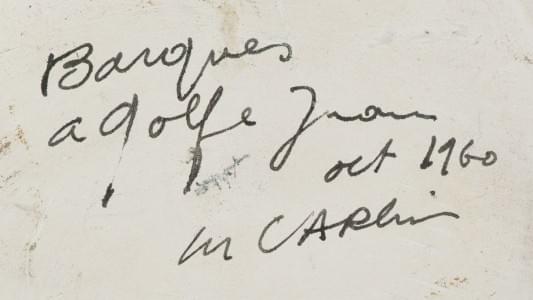 Barques
a Golfe Juan
oct 1960
M CARLIN